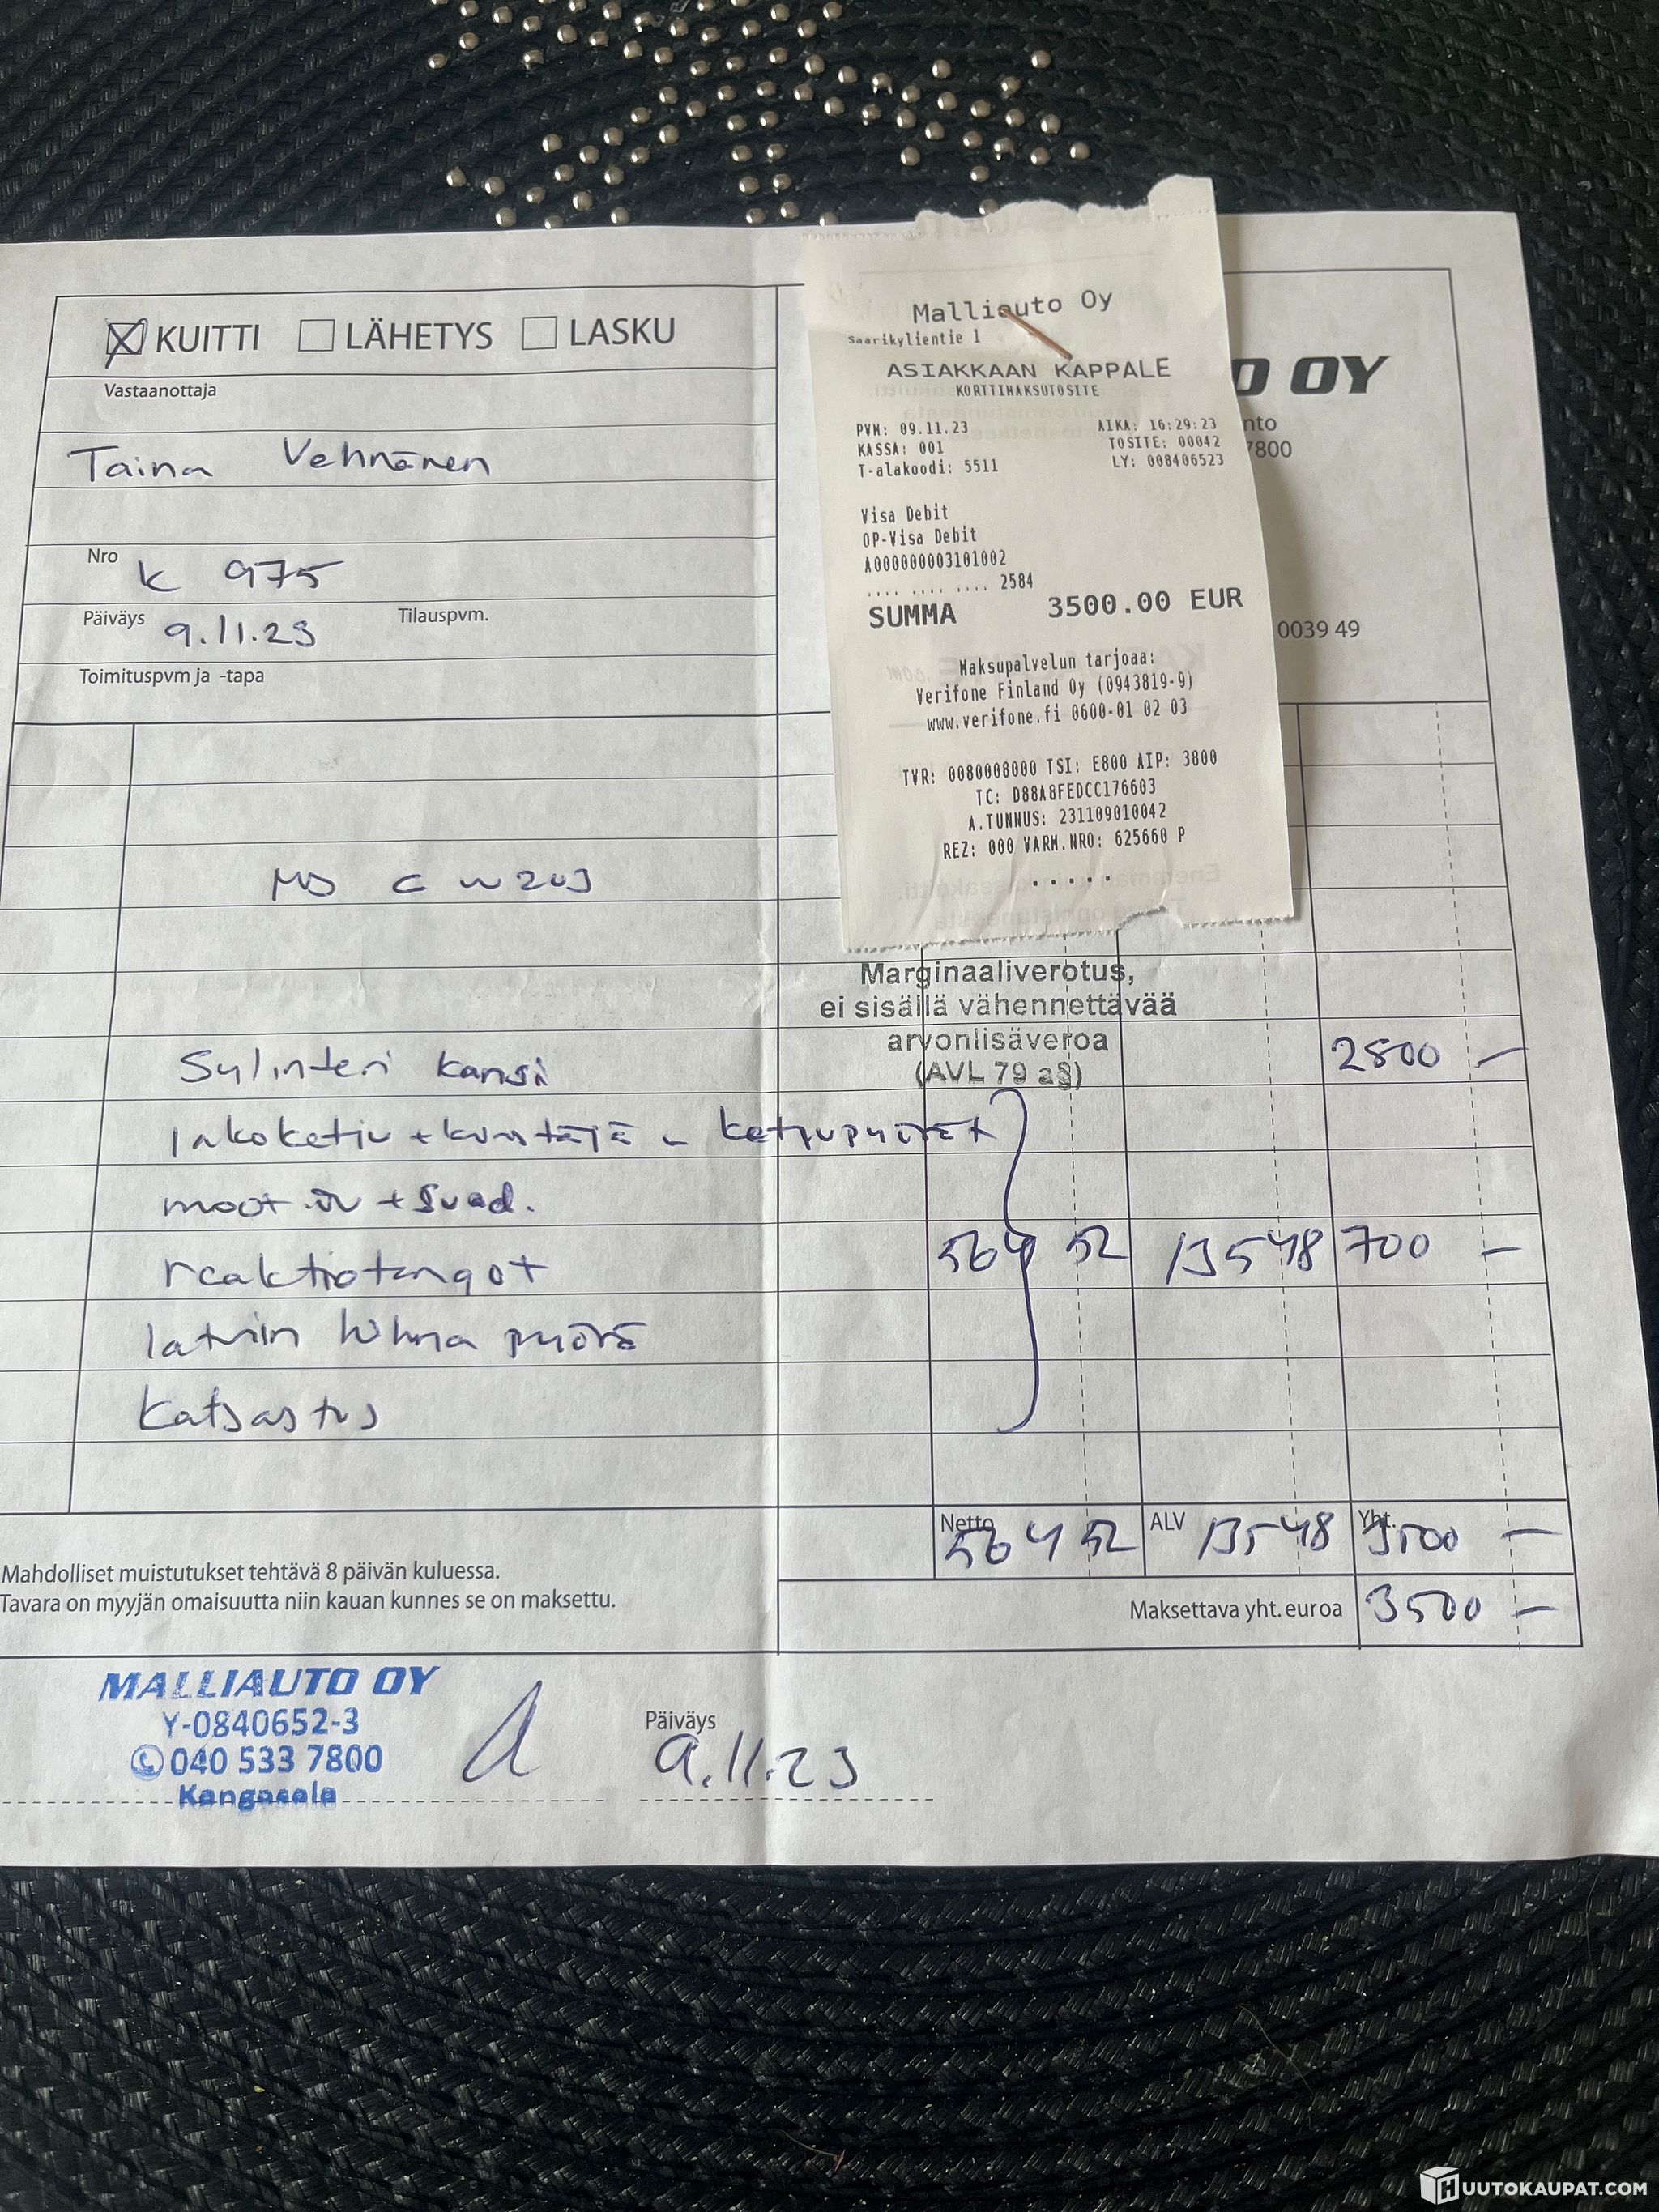 KUITTI LÄHETYS LASKU
Vastaanottaja
Taina Vehnänen
Nro K 975
Päiväys 9.11.23 Tilauspvm.
Toimituspvm ja -tapa
Malliauto Oy
Saarikylientie 1
ASIAKKAAN KAPPALE
KORTTIMAKSUTOSITE
PVM: 09.11.23 AIKA: 16:29:23
KASSA: 001 TOSITE: 00042
T-alakoodi: 5511 LY: 008406523
Visa Debit
OP-Visa Debit
A000000003101002
.... .... .... 2584
SUMMA 3500.00 EUR
Maksupalvelun tarjoaa:
Verifone Finland Oy (0943819-9)
www.verifone.fi 0600-01 02 03
TVR: 0080008000 TSI: E800 AIP: 3800
TC: D88A8FEDCC176603
A.TUNNUS: 231109010042
REZ: 000 VARM.NRO: 625660 P
.....
O OY
nto
7800
0039 49
MB C W203
Marginaaliverotus,
ei sisällä vähennettävää
arvonlisäveroa
(AVL 79 a§)
Sylinteri kansi 2800 —
Jakoketju + kiristäjä - ketjupyörät
moot.öl + suod.
reaktiotangot 564 52 135 48 700 —
laturin hihna pyörä
Katsastus
Netto 564 52 ALV 135 48 Yht. 3500 —
Mahdolliset muistutukset tehtävä 8 päivän kuluessa.
Tavara on myyjän omaisuutta niin kauan kunnes se on maksettu.
Maksettava yht. euroa 3500 —
MALLIAUTO OY
Y-0840652-3
040 533 7800
Kangasala
Päiväys
9.11.23
HUUTOKAUPAT.COM